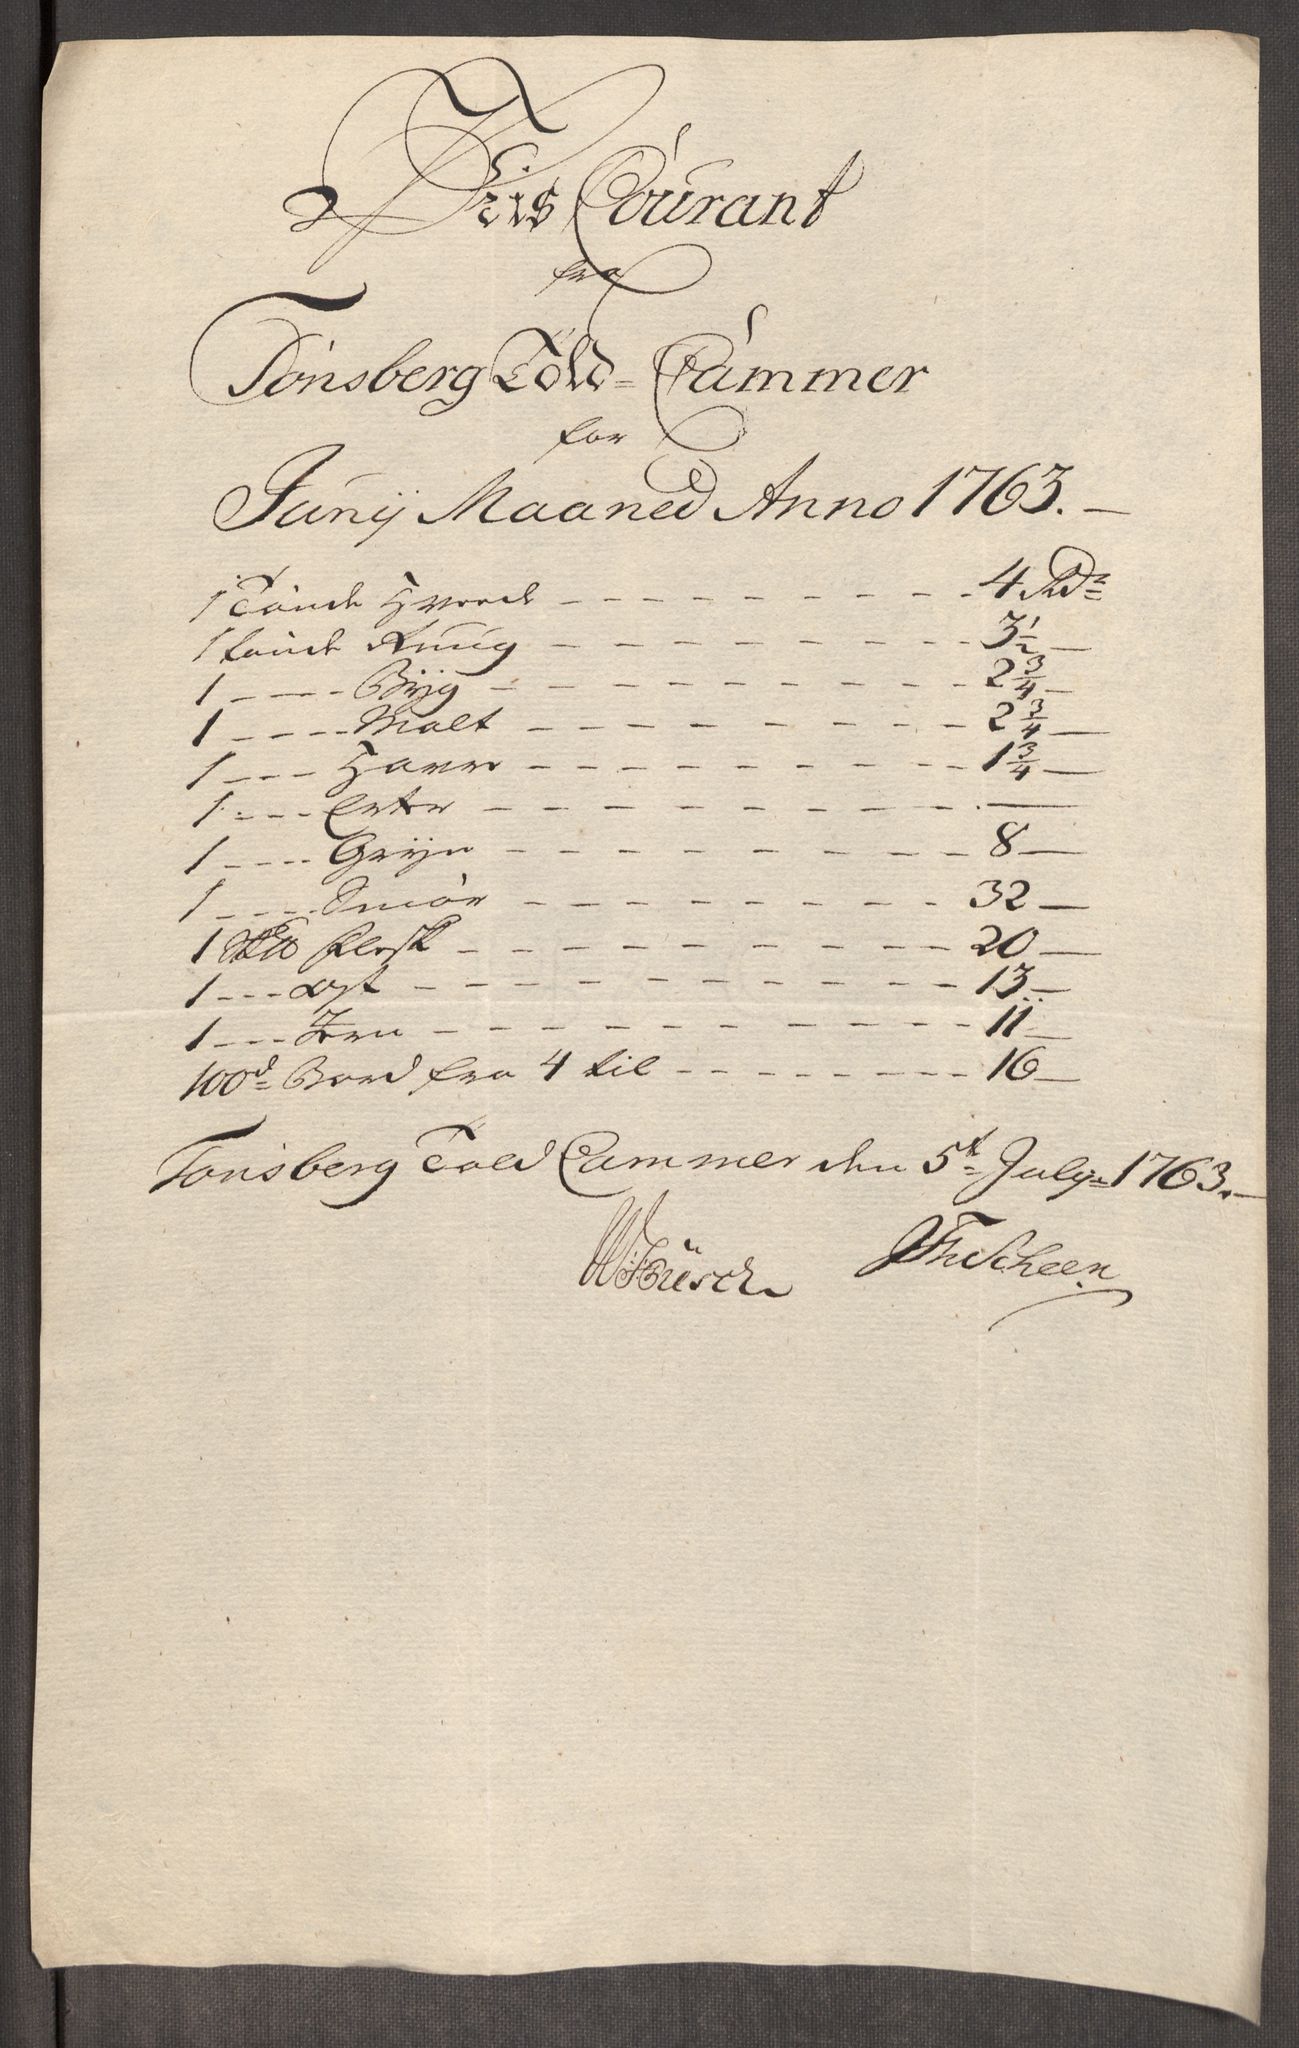 Priis Courant
fra
Tonsberg Told=Cammer
for
Junij Maaned Anno 1763.—
1 Tönde Hveede - - - - - - - - 4 Rdr
1 tönde Rung - - - - - - - - 3½ —
1 - - - - Byg - - - - - - - - 2¾ —
1 - - - - Malt - - - - - - - - 2¾ —
1 - - - Havre - - - - - - - - 1¾ —
1 - - - Erter - - - - - - - - —
1 - - - - Gryn - - - - - - - - 8 —
1 - - - - Smör - - - - - - - - 32 —
1 Flesk - - - - - - - - 20 —
1 - - - - - - - - - - - 13 —
1 - - - - - - - - - - - 11 —
100d Bord fra 4 til - - - - - - - - 16 —
Tonsberg Told Cammer den 5t July 1763.—
Büsch JThScheen.